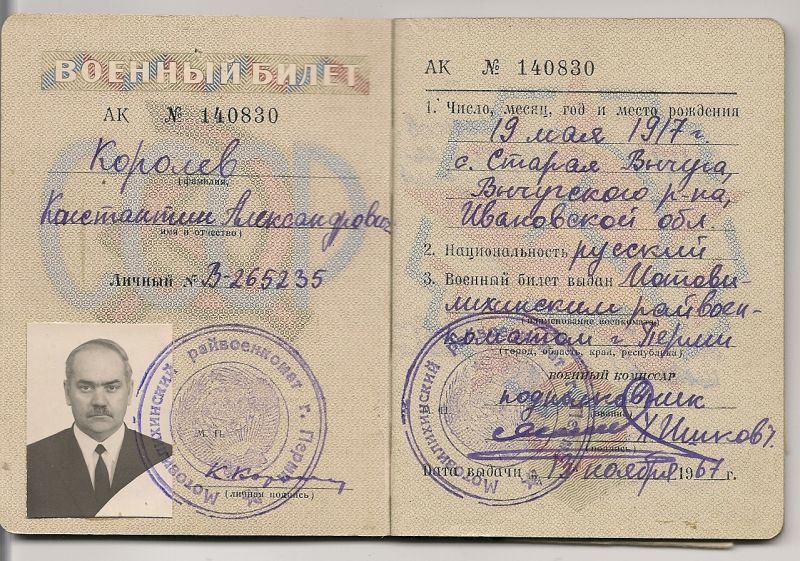 ВОЕННЫЙ БИЛЕТ
АК № 140830
Королев
(фамилия,
Константин Александрович
имя и отчество)
Личный № В-265235
Мотовилихинский райвоенкомат г. Перми
М. П.
(личная подпись)
АК № 140830
1. Число, месяц, год и место рождения
19 мая 1917 г.
с. Старая Вычуга,
Вычугского р-на,
Ивановской обл.
2. Национальность русский
3. Военный билет выдан Мотови-
лихинским райвоен-
(наименование военкомата)
коматом г. Перми
(город, область, край, республика)
ВОЕННЫЙ КОМИССАР
подполковник
(звание)
(подпись)
Дата выдачи 13 ноября 1967 г.